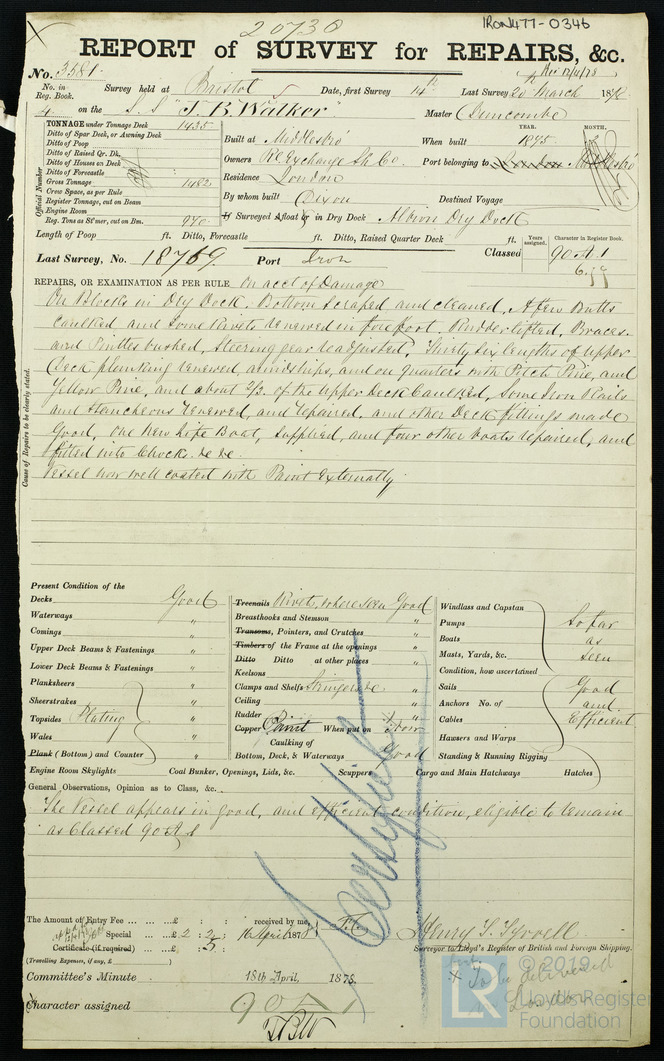 20738
IRON477-0346
REPORT of SURVEY for REPAIRS, &c.
No. 3581
No. in Reg. Book. Survey held at Bristol Date, first Survey 14th Last Survey 20 March 1878
4 on the S.S "J. B. Walker" Master Duncombe
TONNAGE under Tonnage Deck 1435
Ditto of Spar Deck, or Awning Deck
Ditto of Poop
Ditto of Raised Qr. Dk.
Ditto of Houses on Deck
Ditto of Forecastle
Gross Tonnage 1482
Crew Space, as per Rule
Register Tonnage, cut on Beam
Engine Room
Reg. Tons as St'mer, cut on Bm. 970
Official Number
YEAR. MONTH.
Built at Middlesbro' When built 1875
Owners Rl Exchange Sh. Co. Port belonging to London Middlesbro
Residence London
By whom built Dixon Destined Voyage
If Surveyed Afloat or in Dry Dock Albion Dry Dock
Length of Poop ft. Ditto, Forecastle ft. Ditto, Raised Quarter Deck ft.
Years assigned. Character in Register Book.
Last Survey, No. 18769 Port Iron Classed 90 A 1
REPAIRS, OR EXAMINATION AS PER RULE on acct of Damage
Cause of Repairs to be clearly stated.
On Blocks in Dry Dock. Bottom Scraped and cleaned, A few Butts
caulked and some Rivets renewed in forefoot. Rudder lifted, Braces
and Pintles bushed, Steering gear readjusted, Thirty six lengths of upper
Deck planking renewed amidships, and on quarters with Pitch Pine, and
Yellow Pine, and about 2/3 of the Upper Deck Caulked, Some Iron Rails
and Stancheons renewed, and repaired, and other Deck fittings made
Good, one New Life Boat, supplied, and four other boats repaired, and
fitted into Chock. &c &c.
Vessel now well coated with Paint Externally
Present Condition of the
Decks Good
Waterways "
Comings "
Upper Deck Beams & Fastenings "
Lower Deck Beams & Fastenings "
Planksheers
Sheerstrakes "
Topsides Plating "
Wales "
Plank (Bottom) and Counter "
Treenails Rivets, where seen Good
Breasthooks and Stemson "
Transoms, Pointers, and Crutches "
Timbers of the Frame at the openings "
Ditto Ditto at other places "
Keelsons "
Clamps and Shelfs Stringers &c "
Ceiling "
Rudder "
Copper Paint When put on Now
Caulking of
Bottom, Deck, & Waterways Good
Windlass and Capstan
Pumps So far
Boats as
Masts, Yards, &c. seen
Condition, how ascertained
Sails Good
Anchors No. of and
Cables Efficient
Hawsers and Warps
Standing & Running Rigging
Engine Room Skylights Coal Bunker, Openings, Lids, &c. Scuppers Cargo and Main Hatchways Hatches
General Observations, Opinion as to Class, &c.
The Vessel appears in good, and efficient condition, eligible to remain
as Classed 90 A 1
Certificate
The Amount of Entry Fee ... £ : : received by me,
Special ... £ 2 : 2 : 16 April 1878
Certificate (if required) ... £ : 5 :
(Travelling Expenses, if any, £ )
Henry T. Tyrrell
Surveyor to Lloyd's Register of British and Foreign Shipping.
Committee's Minute 18th April, 1878
Character assigned 90 A 1
To be delivered
London
© 2019
LR Lloyd's Register
Foundation